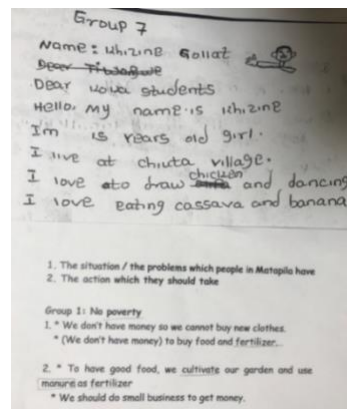 Group 7
Name: Khizine Goliat
Dear
Dear Koua students
Hello, My name is Khizine
I'm 15 Years old girl.
I live at chiuta village.
I love ato draw chicken and dancing
I love eating cassava and banana
1. The situation / the problems which people in Matapila have
2. The action which they should take
Group 1: No poverty
1. * We don't have money so we cannot buy new clothes.
* (We don't have money) to buy food and fertilizer.
2. * To have good food, we cultivate our garden and use
manure as fertilizer
* We should do small business to get money.